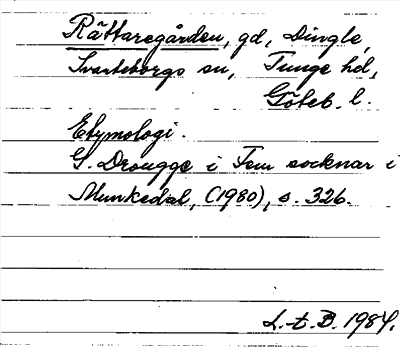 Rättaregården, gd, Dingle,
Svarteborgs sn, Tunge hd,
Göteb. l.
Etymologi.
G. Drougge i Fem socknar i
Munkedal, (1980), s. 326.
L.t.B. 1984.